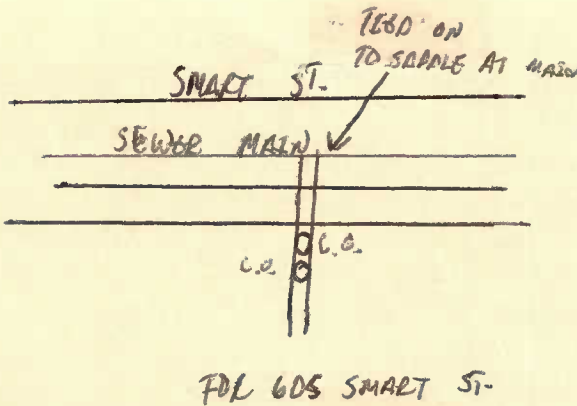 TIED ON
TO SADDLE AT MAIN
SMART ST.
SEWER MAIN
C.O.
C.O.
FOR 605 SMART ST.